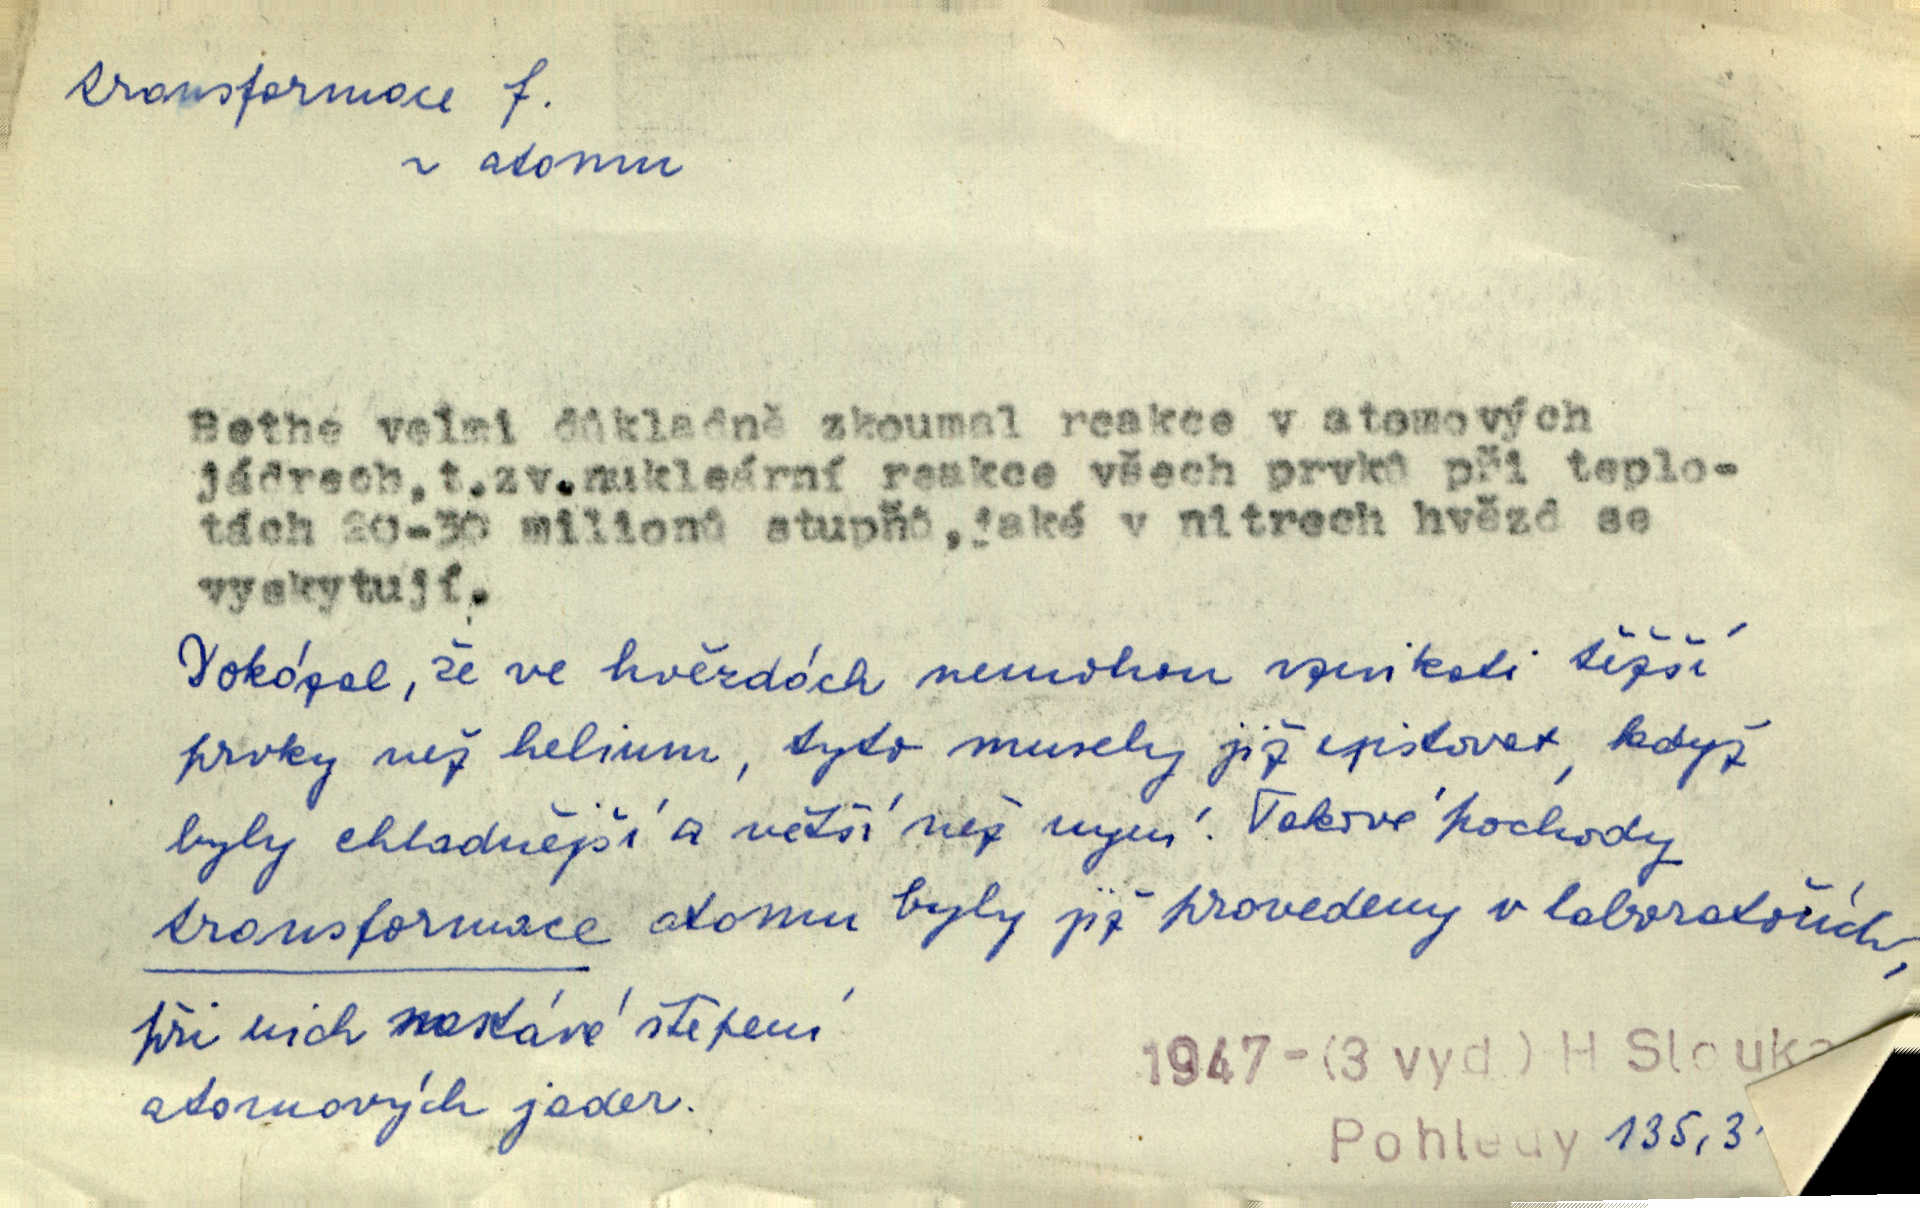 transformace f.
~ atomu
Bethe velmi důkladně zkoumal reakce v atomových
jádrech,t.zv.nukleární reakce všech prvků při teplo-
tách 20-30 milionů stupňů,jaké v nitrech hvězd se
vyskytují.
Dokázal, že ve hvězdách nemohou vznikati těžší
prvky než helium, tyto musely již existovat, když
byly chladnější a větší než nyní. Takové pochody
transformace atomu byly již provedeny v laboratořích,
při nich nastává štěpení
atomových jader.
1947-(3 vyd.) H Slouka
Pohledy 135,3